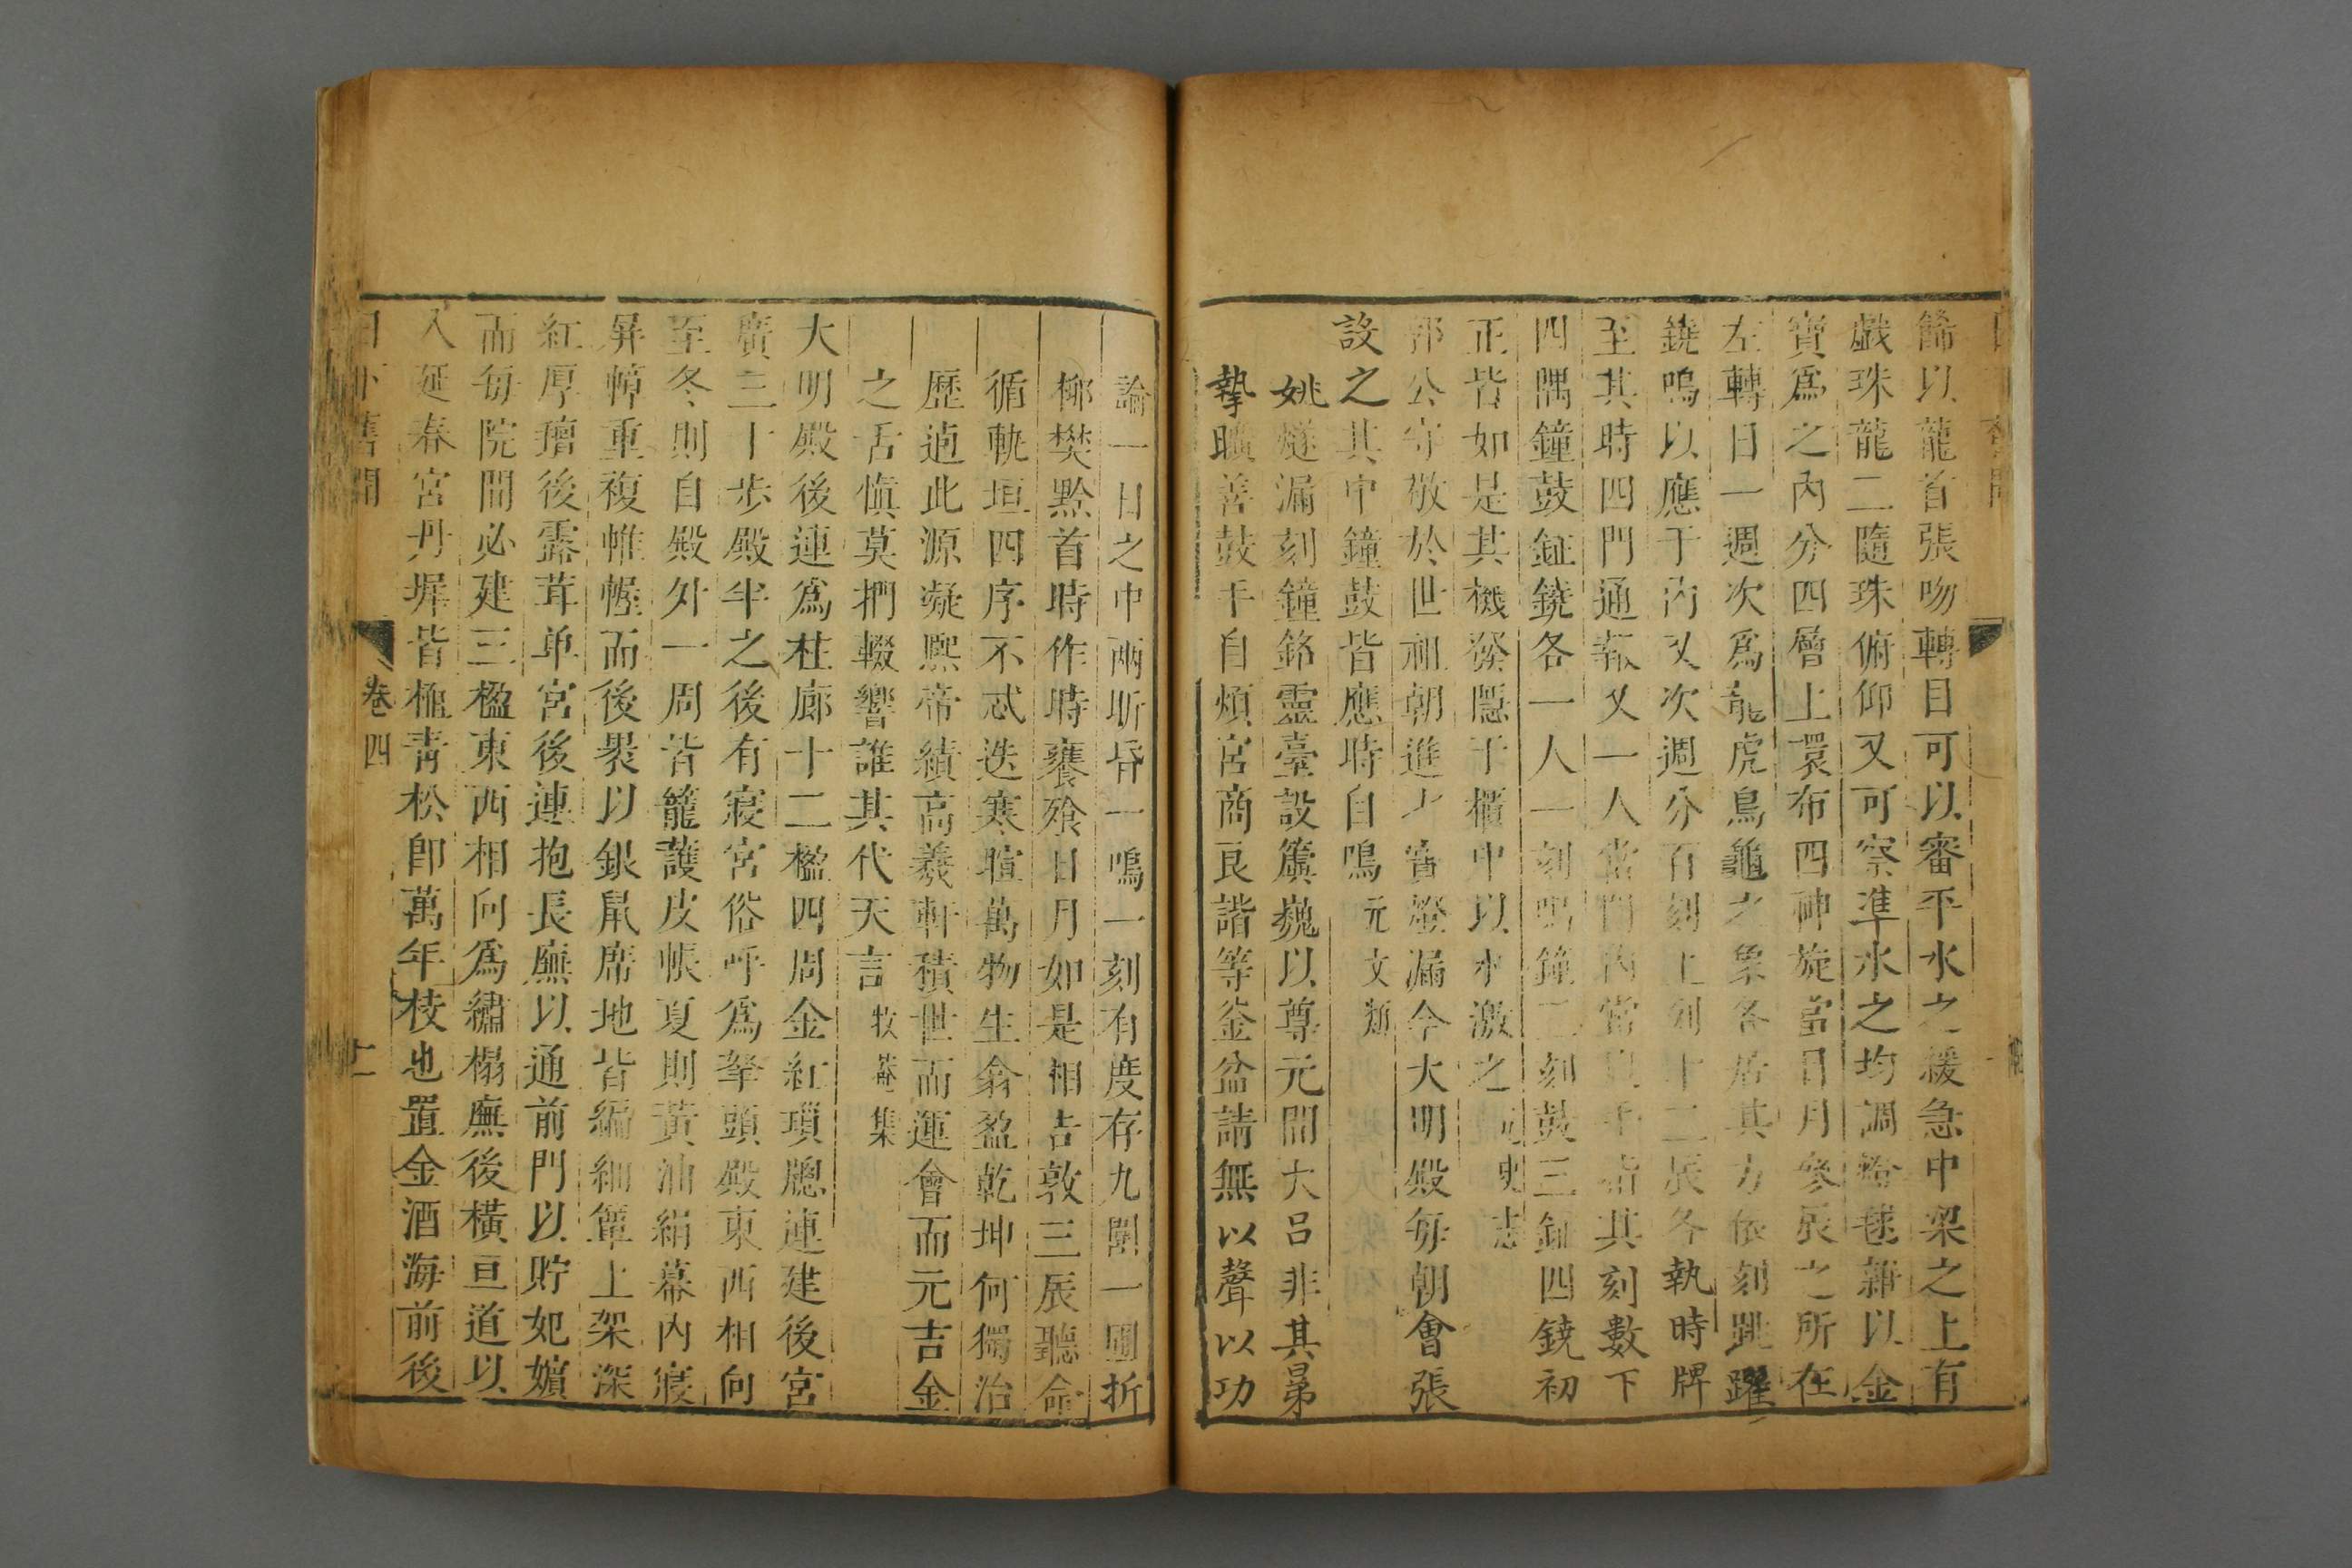 餙以龍首張吻轉目可以審平水之緩急中梁之上有
戱珠龍二隨珠俯仰又可察準水之均調 毬雜以金
寶爲之內分四層上環布四神旋當日月參辰之所在
左轉日一週次爲龍虎鳥龜之象各居其方依刻跳躍
鐃鳴以應于內又次週分百刻上列十二辰各執時牌
至其時四門通報又一人當門內常以手指其刻數下
四隅鐘鼓鉦鐃各一人一刻鳴鐘二刻鼓三鉦四鐃初
正皆如是其機發隱于櫃中以水激之元史志
郭公守敬於世祖朝進 寶燈漏今大明殿每朝會張
設之其中鐘鼓皆應時自鳴元文類
姚燧漏刻鐘銘靈臺設簴巍以尊元間大呂非其弟
摯曠善鼓手自煩宮商良諧等釜盆請無以聲以功
論一日之中兩昕昏一鳴一刻有度存九閽一圜折
柳樊黔首時作時饔飱日月如是相告敦三辰聽命
循軌垣四序不忒迭寒暄萬物生翕盈乾坤何獨治
歷逌此源凝熙帝績高羲軒積世而運會而元吉金
之舌慎莫捫輟響誰其代天言牧菴集
大明殿後連爲柱廊十二楹四周金紅瑣牕連建後宮
廣三十步殿半之後有寢宮俗呼爲拏頭殿東西相向
至冬則自殿外一周皆籠護皮帳夏則黃油絹幕內寢
屏幛重複帷幄而後裠以銀鼠席地皆編細簟上架深
紅厚㲲後露茸单宮後連抱長廡以通前門以貯妃嬪
而每院間必建三楹東西相向爲繡榻廡後橫亘道以
入延春宮丹墀皆植青松即萬年枝也置金酒海前後
日下舊聞
卷四